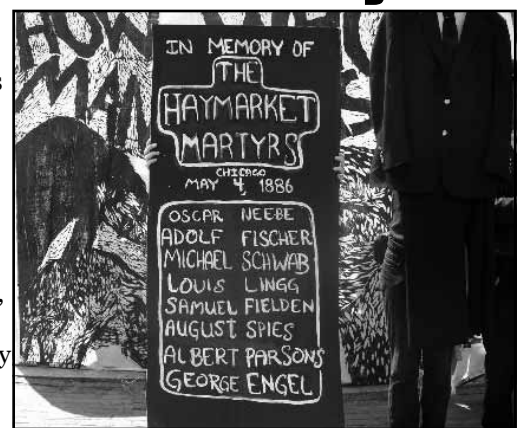 HOW
MAN
IN MEMORY OF
THE
HAYMARKET
MARTYRS
CHICAGO
MAY 4, 1886
OSCAR NEEBE
ADOLF FISCHER
MICHAEL SCHWAB
LOUIS LINGG
SAMUEL FIELDEN
AUGUST SPIES
ALBERT PARSONS
GEORGE ENGEL